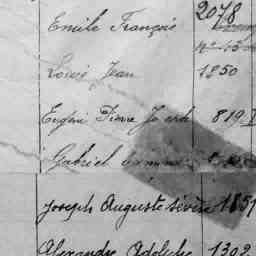 Emile François 2078
Louis Jean 1850
Eugène Pierre Joseph 819
Gabriel
Joseph Auguste Sévère 1851
Alexandre Adolphe 1302